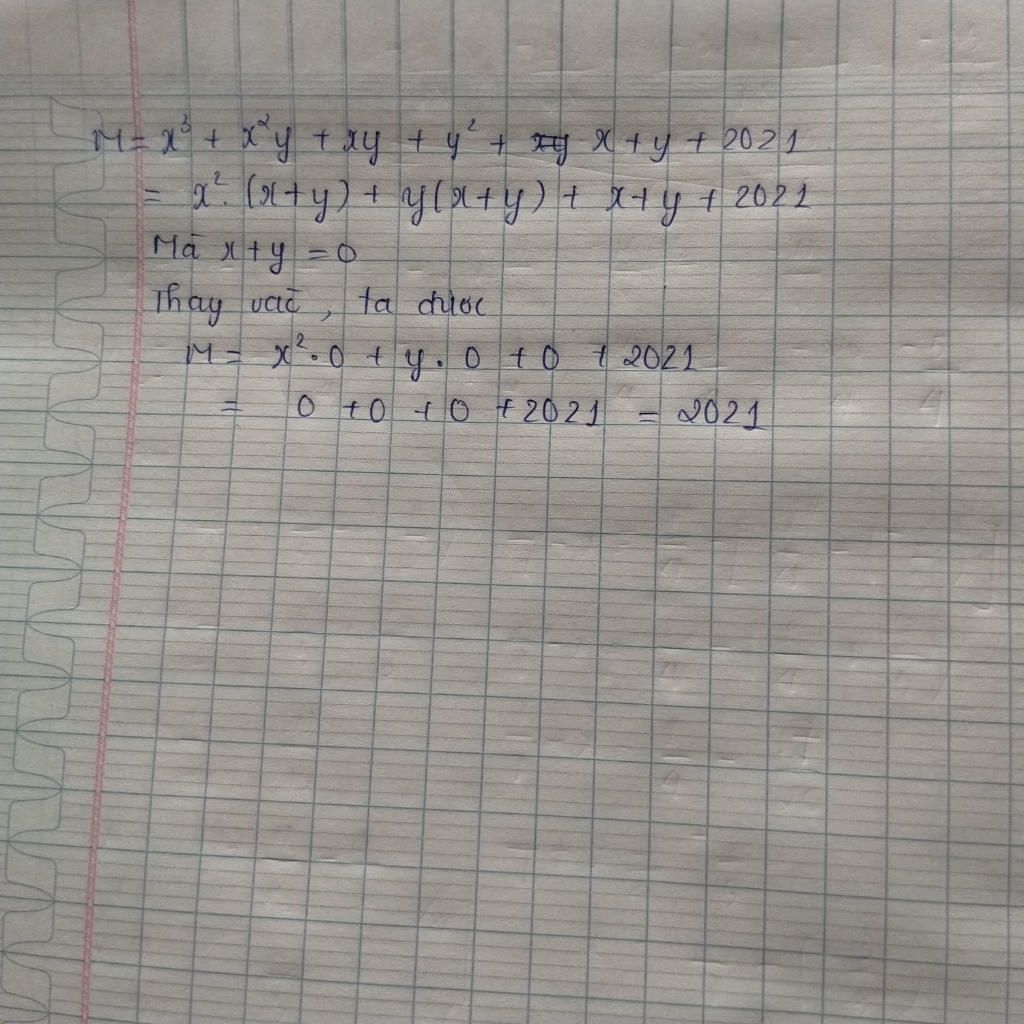 M = x³ + x²y + xy + y² + x + y + 2021
= x². (x+y) + y(x+y) + x+y + 2021
Mà x+y = 0
Thay vào, ta được
M = x².0 + y.0 + 0 + 2021
= 0 + 0 + 0 + 2021 = 2021